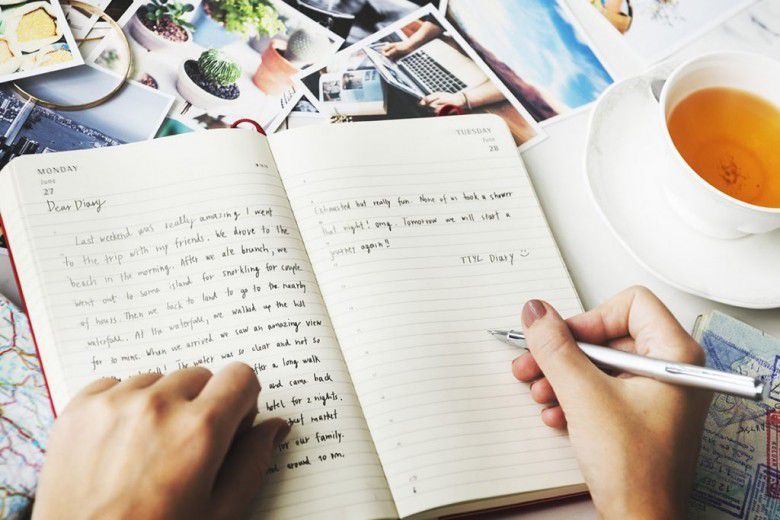 MONDAY
June
27
Dear Diary
Last weekend was really amazing I went
to the trip with my friends. We drove to the
beach in the morning. After we ate brunch, we
went out to some island for snorkling for couple
of hours. Then we back to land to go to the nearby
waterfall. At the waterfall, we walked up the hill
for 10 mins. When we arrived we saw an amazing view
waterfall! The water was so clear and not so
after a long walk
and came back
hotel for 2 nights.
market
for our family.
around 10 pm.
TUESDAY
June
28
Exhausted but really fun. None of us took a shower
that night! omg. Tomorrow we will start a
journey again!!
TTYL Diary